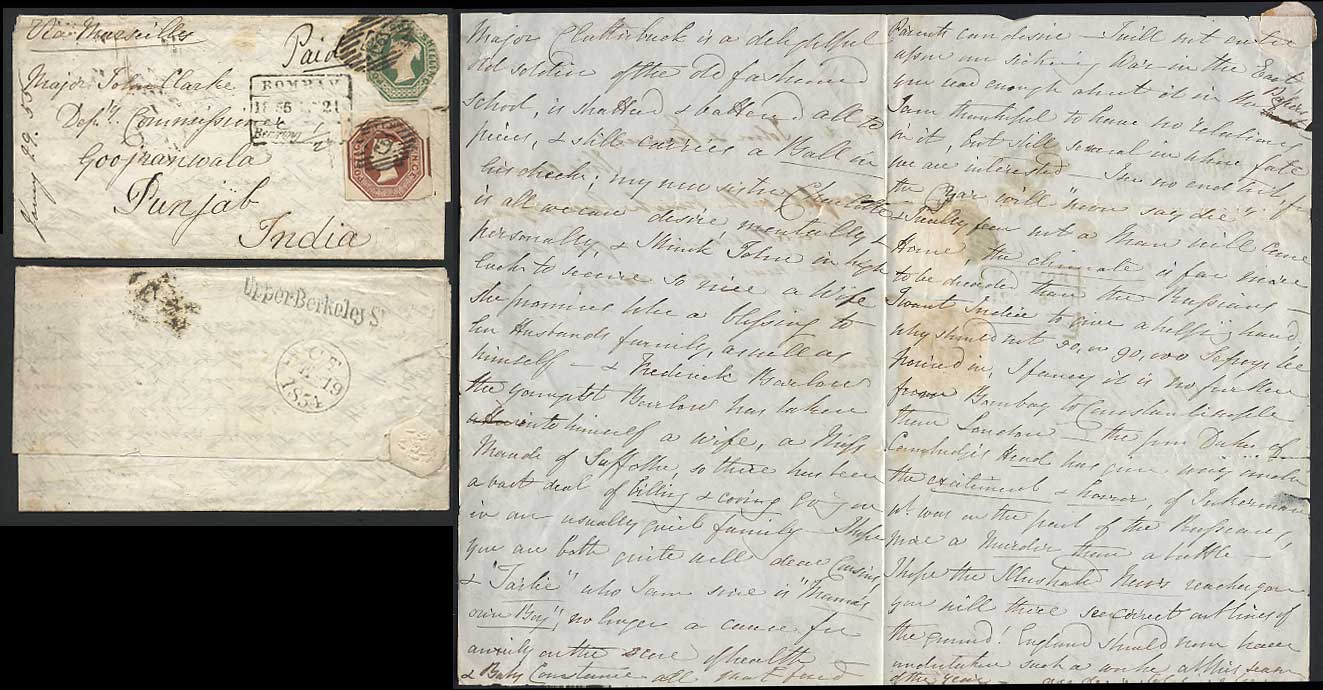 Via Marseilles
Paid
Major John Clarke
Depy. Commissioner
Goojranwala
Punjab
India
BOMBAY
Bearing
ONE SHILLING
Upper Berkeley St
19
1854
Major Clutterbuck is a delightful
old soldier of the old fashioned
school, is shattered & battered all to
pieces, & still carries a Ball in
his cheek; my new sister Charlotte
is all we can desire mentally &
personally, & I think John in high
luck to secure so nice a Wife
she promises to be a blessing to
her Husbands family, as well as
himself — & Frederick Barlow
the youngest Barlow has taken
unto himself a wife, a Miss
Maude of Suffolk, so there has been
a vast deal of billing & cooing going on
in our usually quiet family — I hope
you are both quite well dear Cousins,
& "Tailie" who I am sure is "Mama's
own Boy", no longer a cause for
anxiety on the score of health
& Baby Constance all that fond
Parents can desire — I will not enter
upon our sickening War in the East
you read enough about it in the Papers
I am thankful to have no relations
in it, but still several in whose fate
we are interested — I see no end but, if
the Czar will "never say die" I
fear not a Man will come
Home the climate is far more
to be dreaded than the Russians —
I want India to give a helping hand,
why should not 90,000 Sepoys be
poured in, I fancy it is no further
from Bombay to Constantinople
than London — the poor Duke of
Cambridge's Head has given way under
the excitement & horror of Inkerman
it was on the part of the Russians,
more a Murder than a battle —
I hope the Illustrated News reaches you
you will there see correct outlines of
the ground! England should never have
undertaken such a work at this season
of the year —